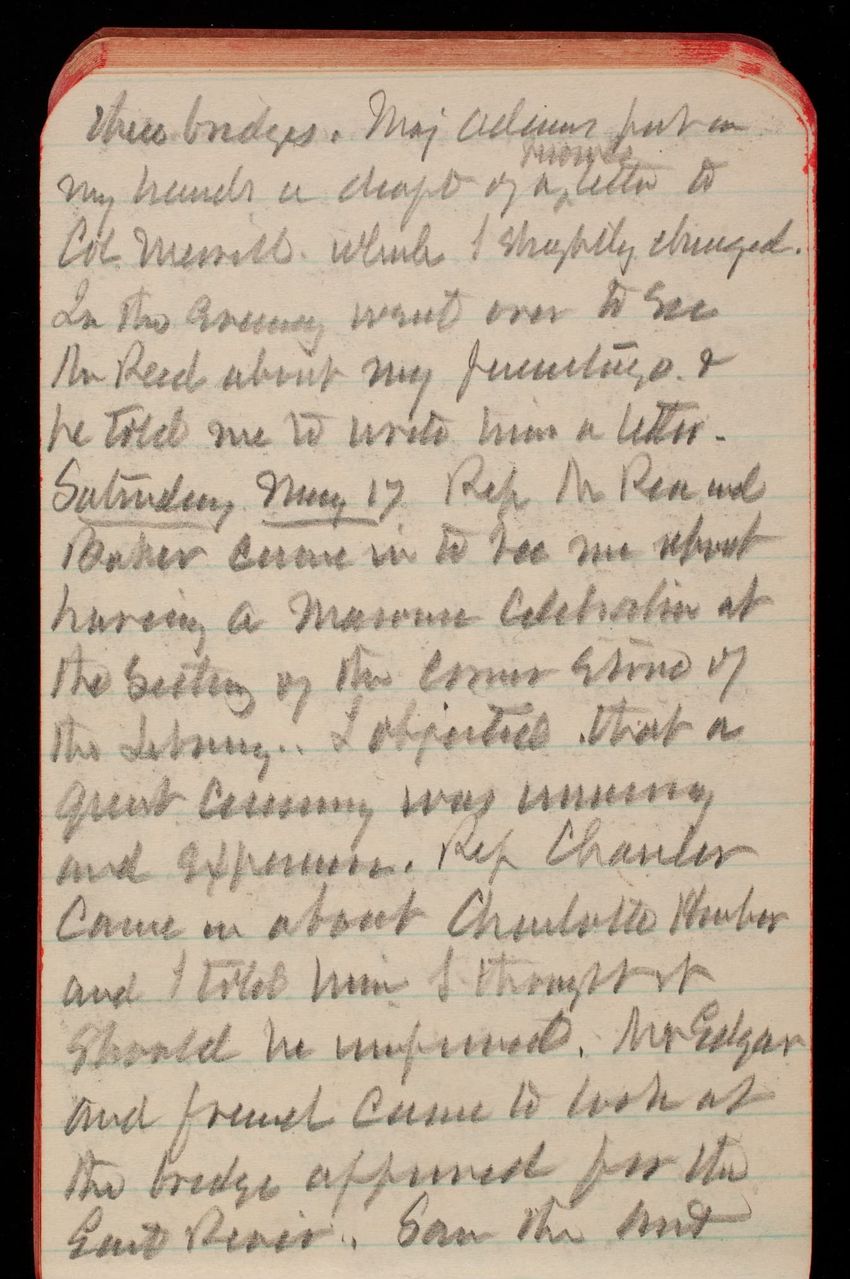 these bridges. Maj Adams put in
my hands a draft of a second letter to
Col Merrill. which I slightly changed.
In the evening went over to see
Mr Reed about my furniture &
he told me to write him a letter.
Saturday May 17 Rep McRea and
Baker came in to see me about
having a Masonic Celebration at
the setting of the corner stone of
the Library. I objected that a
great ceremony was
and expensive. Rep Chandler
came in about Charlotte Harbor
and I told him I thought it
should be improved. Mr Edgar
and friend came to look at
the bridge approved for the
East River. Saw the